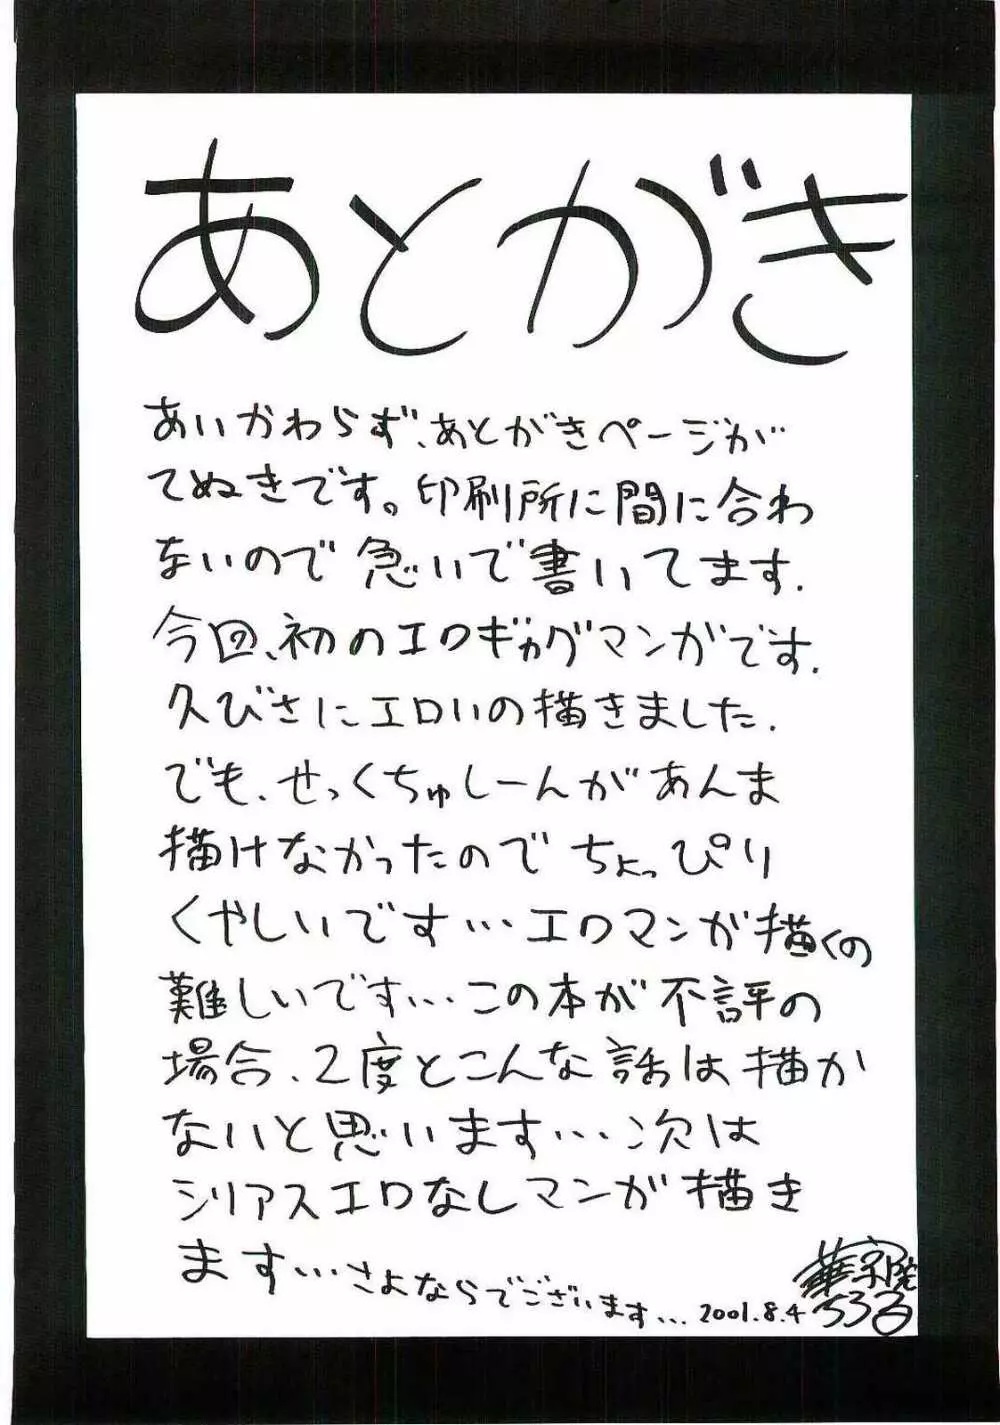 あとがき
あいかわらず、あとがきページが
てぬきです。印刷所に間に合わ
ないので急いで書いてます.
今回、初のエロギャグマンガです.
久びさにエロいの描きました.
でも、せっくちゅしーんがあんま
描けなかったのでちょっぴり
くやしいです…エロマンガ描くの
難しいです…この本が不評の
場合、2度とこんな話は描か
ないと思います…次は
シリアスエロなしマンガ描き
ます…さよならでございます…
2001.8.4